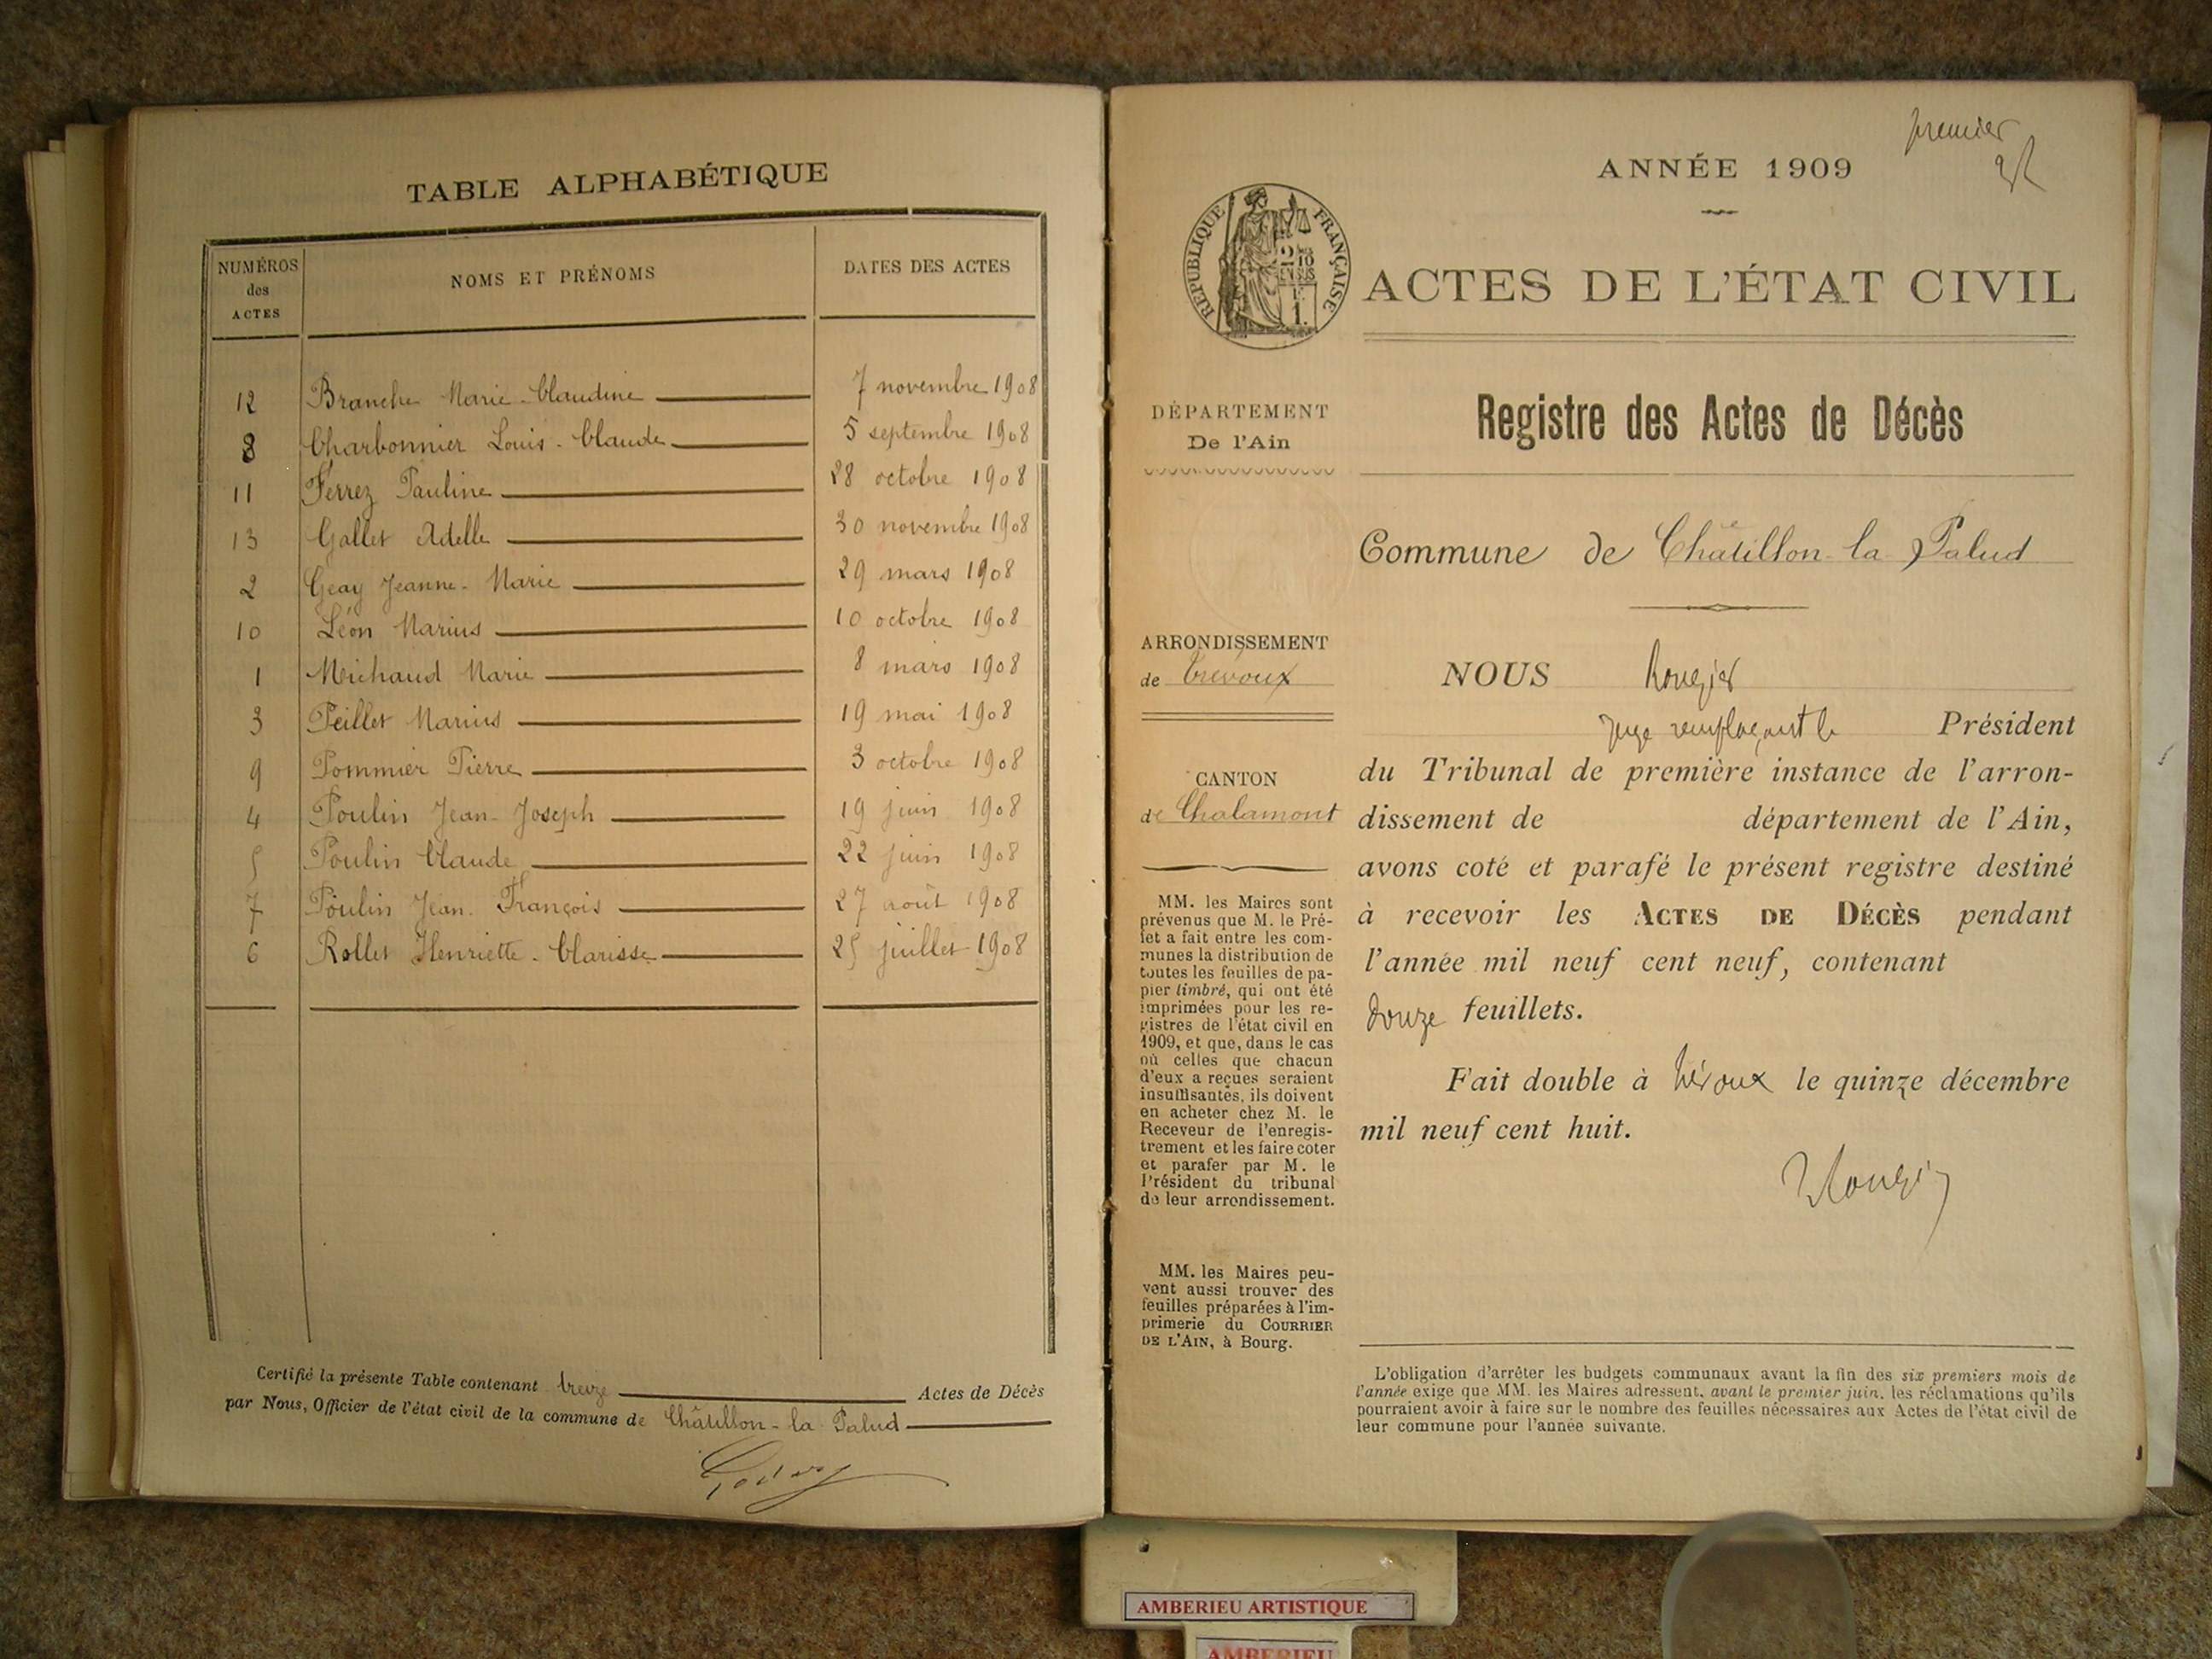 TABLE ALPHABÉTIQUE
NUMÉROS des ACTES
NOMS ET PRÉNOMS
DATES DES ACTES
12 Branche Marie-Claudine 7 novembre 1908
8 Charbonnier Louis-Claude 5 septembre 1908
11 Ferrez Pauline 28 octobre 1908
13 Gallet Adelle 30 novembre 1908
2 Geay Jeanne-Marie 29 mars 1908
10 Léon Marius 10 octobre 1908
1 Michaud Marie 8 mars 1908
3 Peillet Marius 19 mai 1908
9 Pommier Pierre 3 octobre 1908
4 Poulin Jean-Joseph 19 juin 1908
5 Poulin Claude 22 juin 1908
7 Poulin Jean-François 27 août 1908
6 Rollet Henriette-Clarisse 25 juillet 1908
Certifié la présente Table contenant treize Actes de Décès
par Nous, Officier de l'état civil de la commune de Châtillon-la-Palud
premier
ANNÉE 1909
RÉPUBLIQUE FRANÇAISE
ACTES DE L'ÉTAT CIVIL
DÉPARTEMENT
De l'Ain
Registre des Actes de Décès
Commune de Châtillon-la-Palud
ARRONDISSEMENT
de Trévoux
CANTON
de Chalamont
MM. les Maires sont
prévenus que M. le Pré-
fet a fait entre les com-
munes la distribution de
toutes les feuilles de pa-
pier timbré, qui ont été
imprimées pour les re-
gistres de l'état civil en
1909, et que, dans le cas
où celles que chacun
d'eux a reçues seraient
insuffisantes, ils doivent
en acheter chez M. le
Receveur de l'enregis-
trement et les faire coter
et parafer par M. le
Président du tribunal
de leur arrondissement.
MM. les Maires peu-
vent aussi trouver des
feuilles préparées à l'im-
primerie du COURRIER
DE L'AIN, à Bourg.
NOUS Rougier
Juge remplaçant le Président
du Tribunal de première instance de l'arron-
dissement de département de l'Ain,
avons coté et parafé le présent registre destiné
à recevoir les ACTES DE DÉCÈS pendant
l'année mil neuf cent neuf, contenant
douze feuillets.
Fait double à Trévoux le quinze décembre
mil neuf cent huit.
Rougier
L'obligation d'arrêter les budgets communaux avant la fin des six premiers mois de
l'année exige que MM. les Maires adressent, avant le premier juin, les réclamations qu'ils
pourraient avoir à faire sur le nombre des feuilles nécessaires aux Actes de l'état civil de
leur commune pour l'année suivante.
AMBERIEU ARTISTIQUE
AMBERIEU